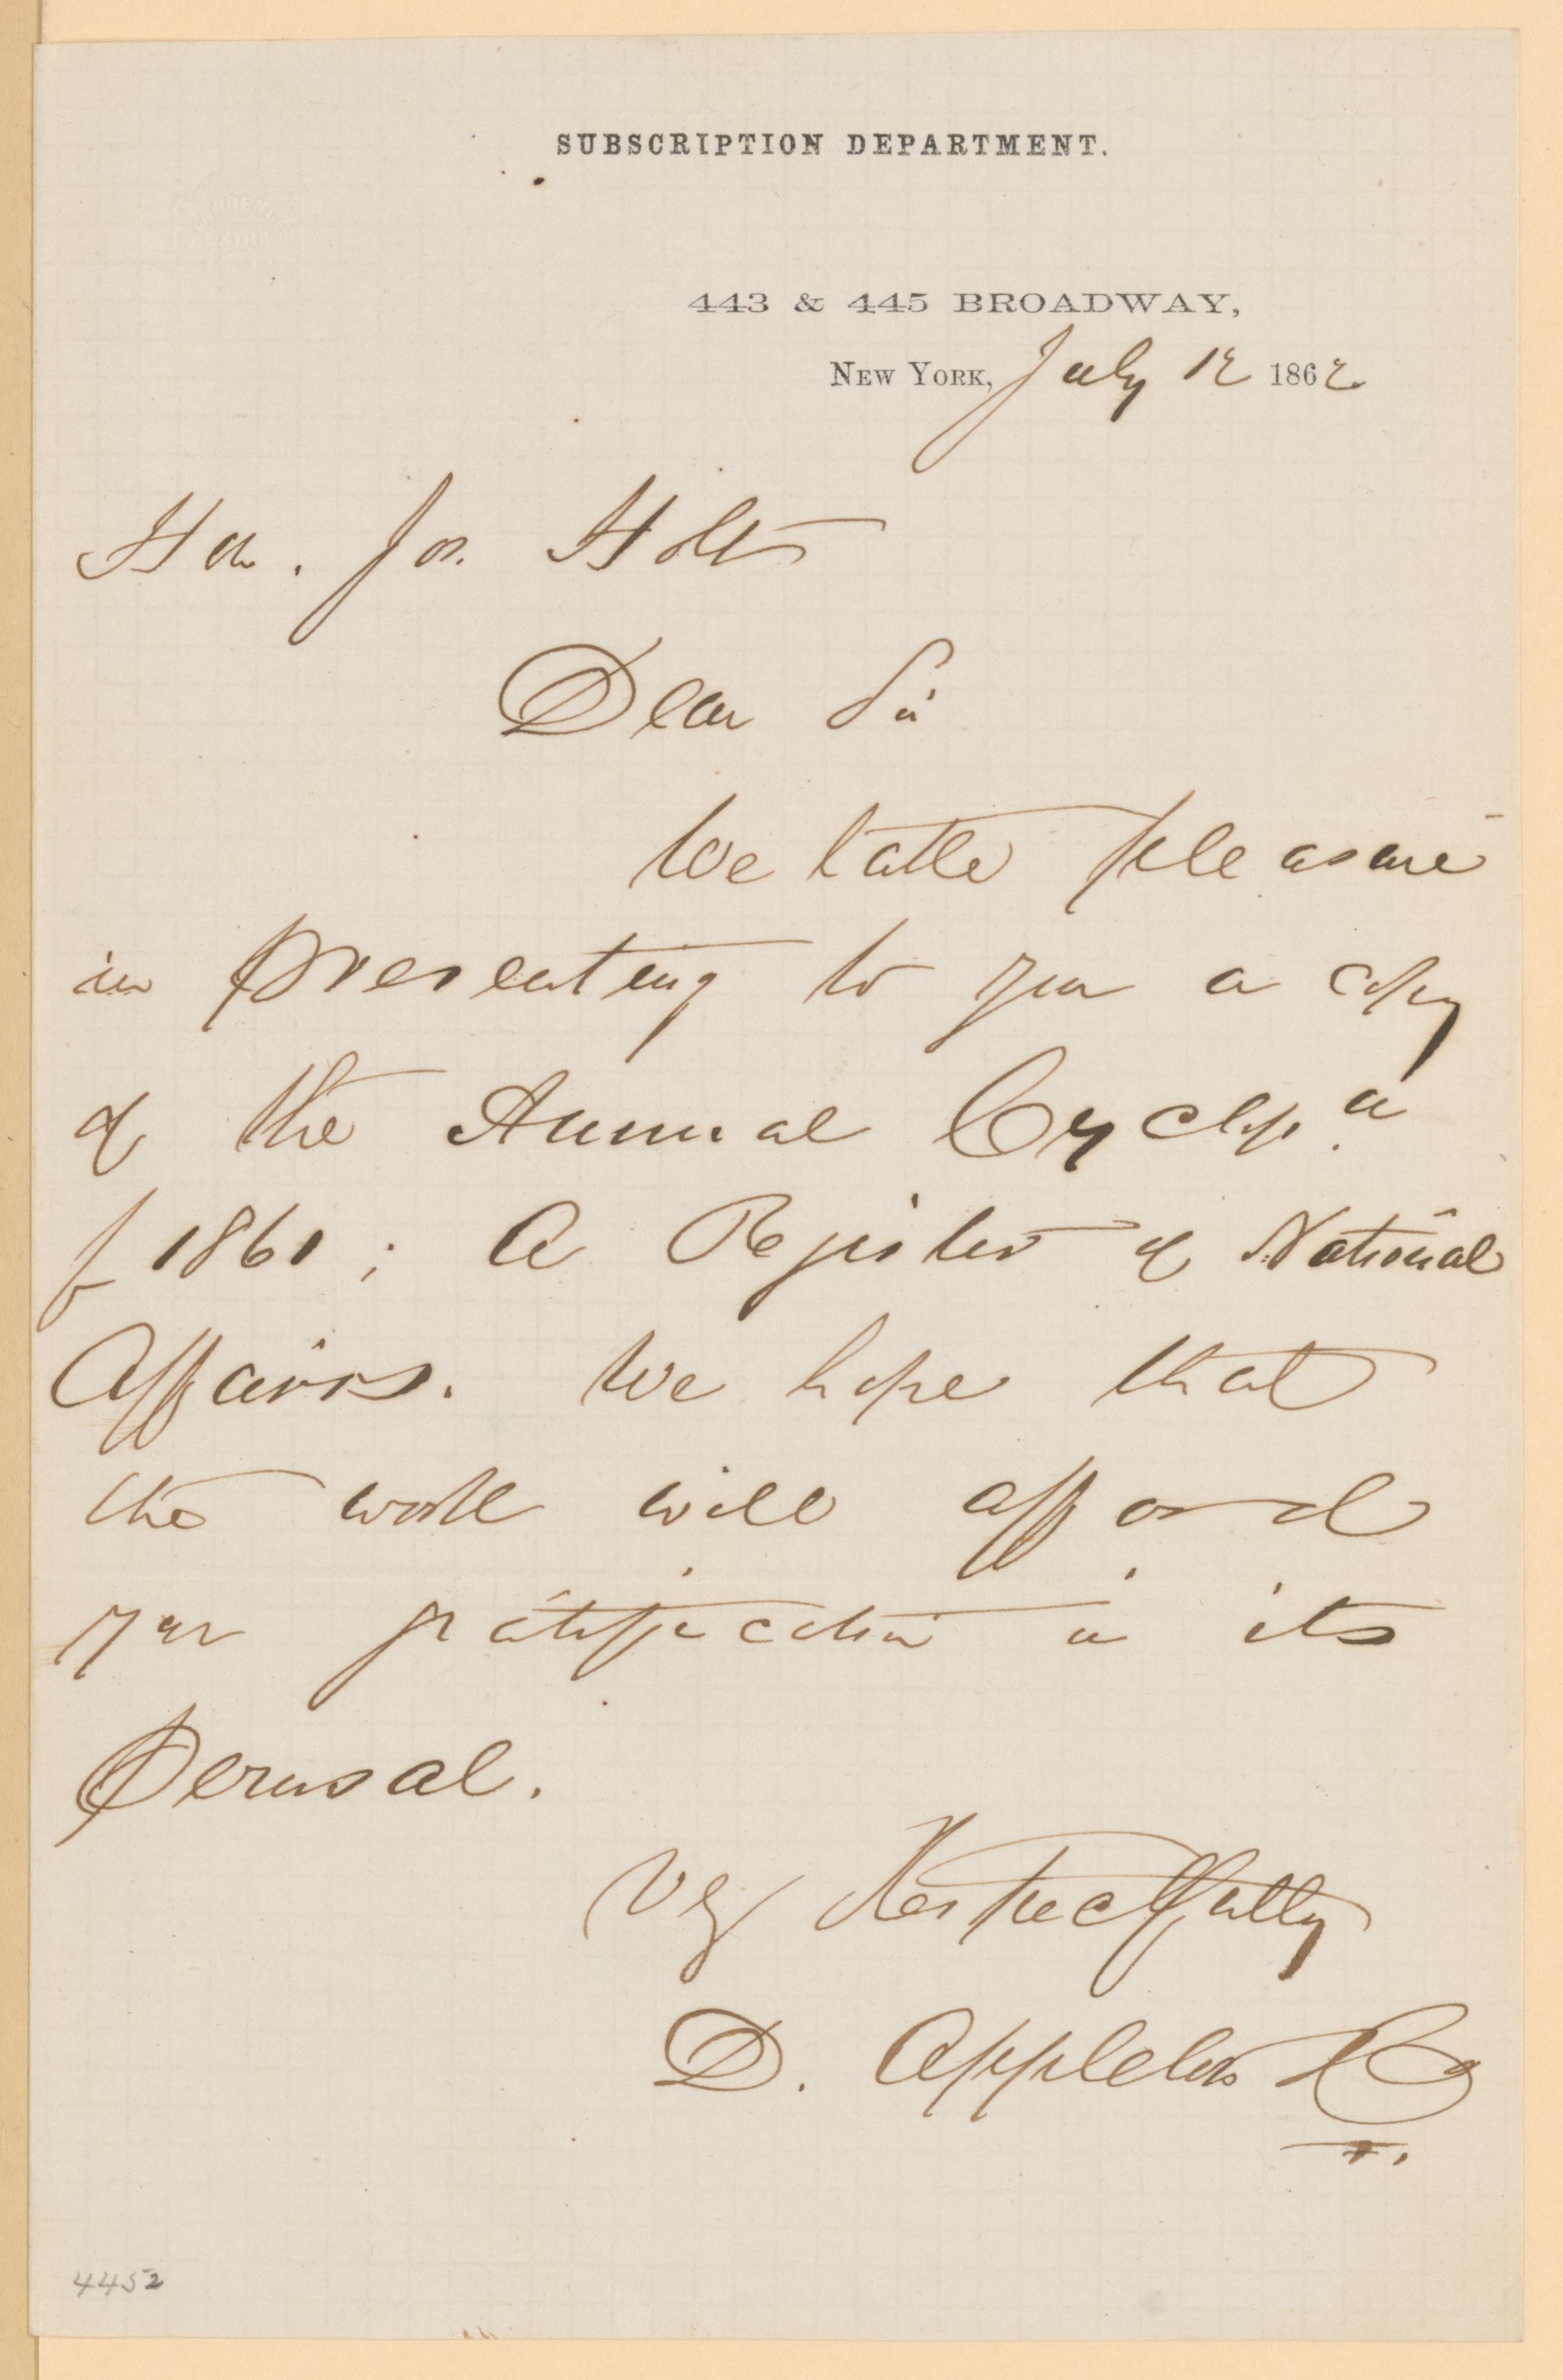 SUBSCRIPTION DEPARTMENT.
443 & 445 BROADWAY,
NEW YORK, July 12 1862
Hon. Jos. Holt
Dear Sir
We take pleasure
in presenting to you a copy
of the Annual Cyclop.a
for 1861; A Register of National
Affairs. We hope that
the work will afford
you gratification in its
Perusal.
Very Respectfully
D. Appleton & Co
4452